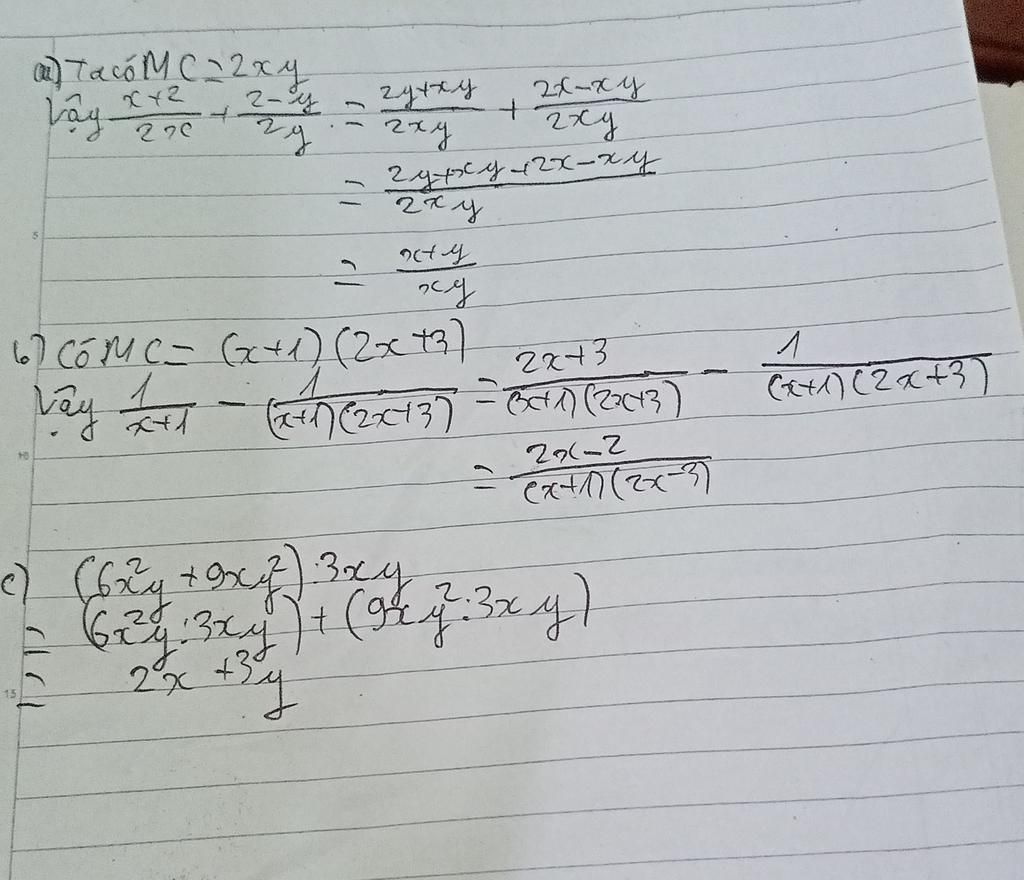 a) Ta có MC = 2xy
Vậy \frac{x+2}{2x} + \frac{2-y}{2y} = \frac{2y+xy}{2xy} + \frac{2x-xy}{2xy}
= \frac{2y+xy+2x-xy}{2xy}
= \frac{x+y}{xy}
b) có MC = (x+1)(2x+3)
Vậy \frac{1}{x+1} - \frac{1}{(x+1)(2x+3)} = \frac{2x+3}{(x+1)(2x+3)} - \frac{1}{(x+1)(2x+3)}
= \frac{2x-2}{(x+1)(2x-3)}
c) (6x²y + 9xy²):3xy
= (6x²y:3xy) + (9xy²:3xy)
= 2x + 3y
5
10
15